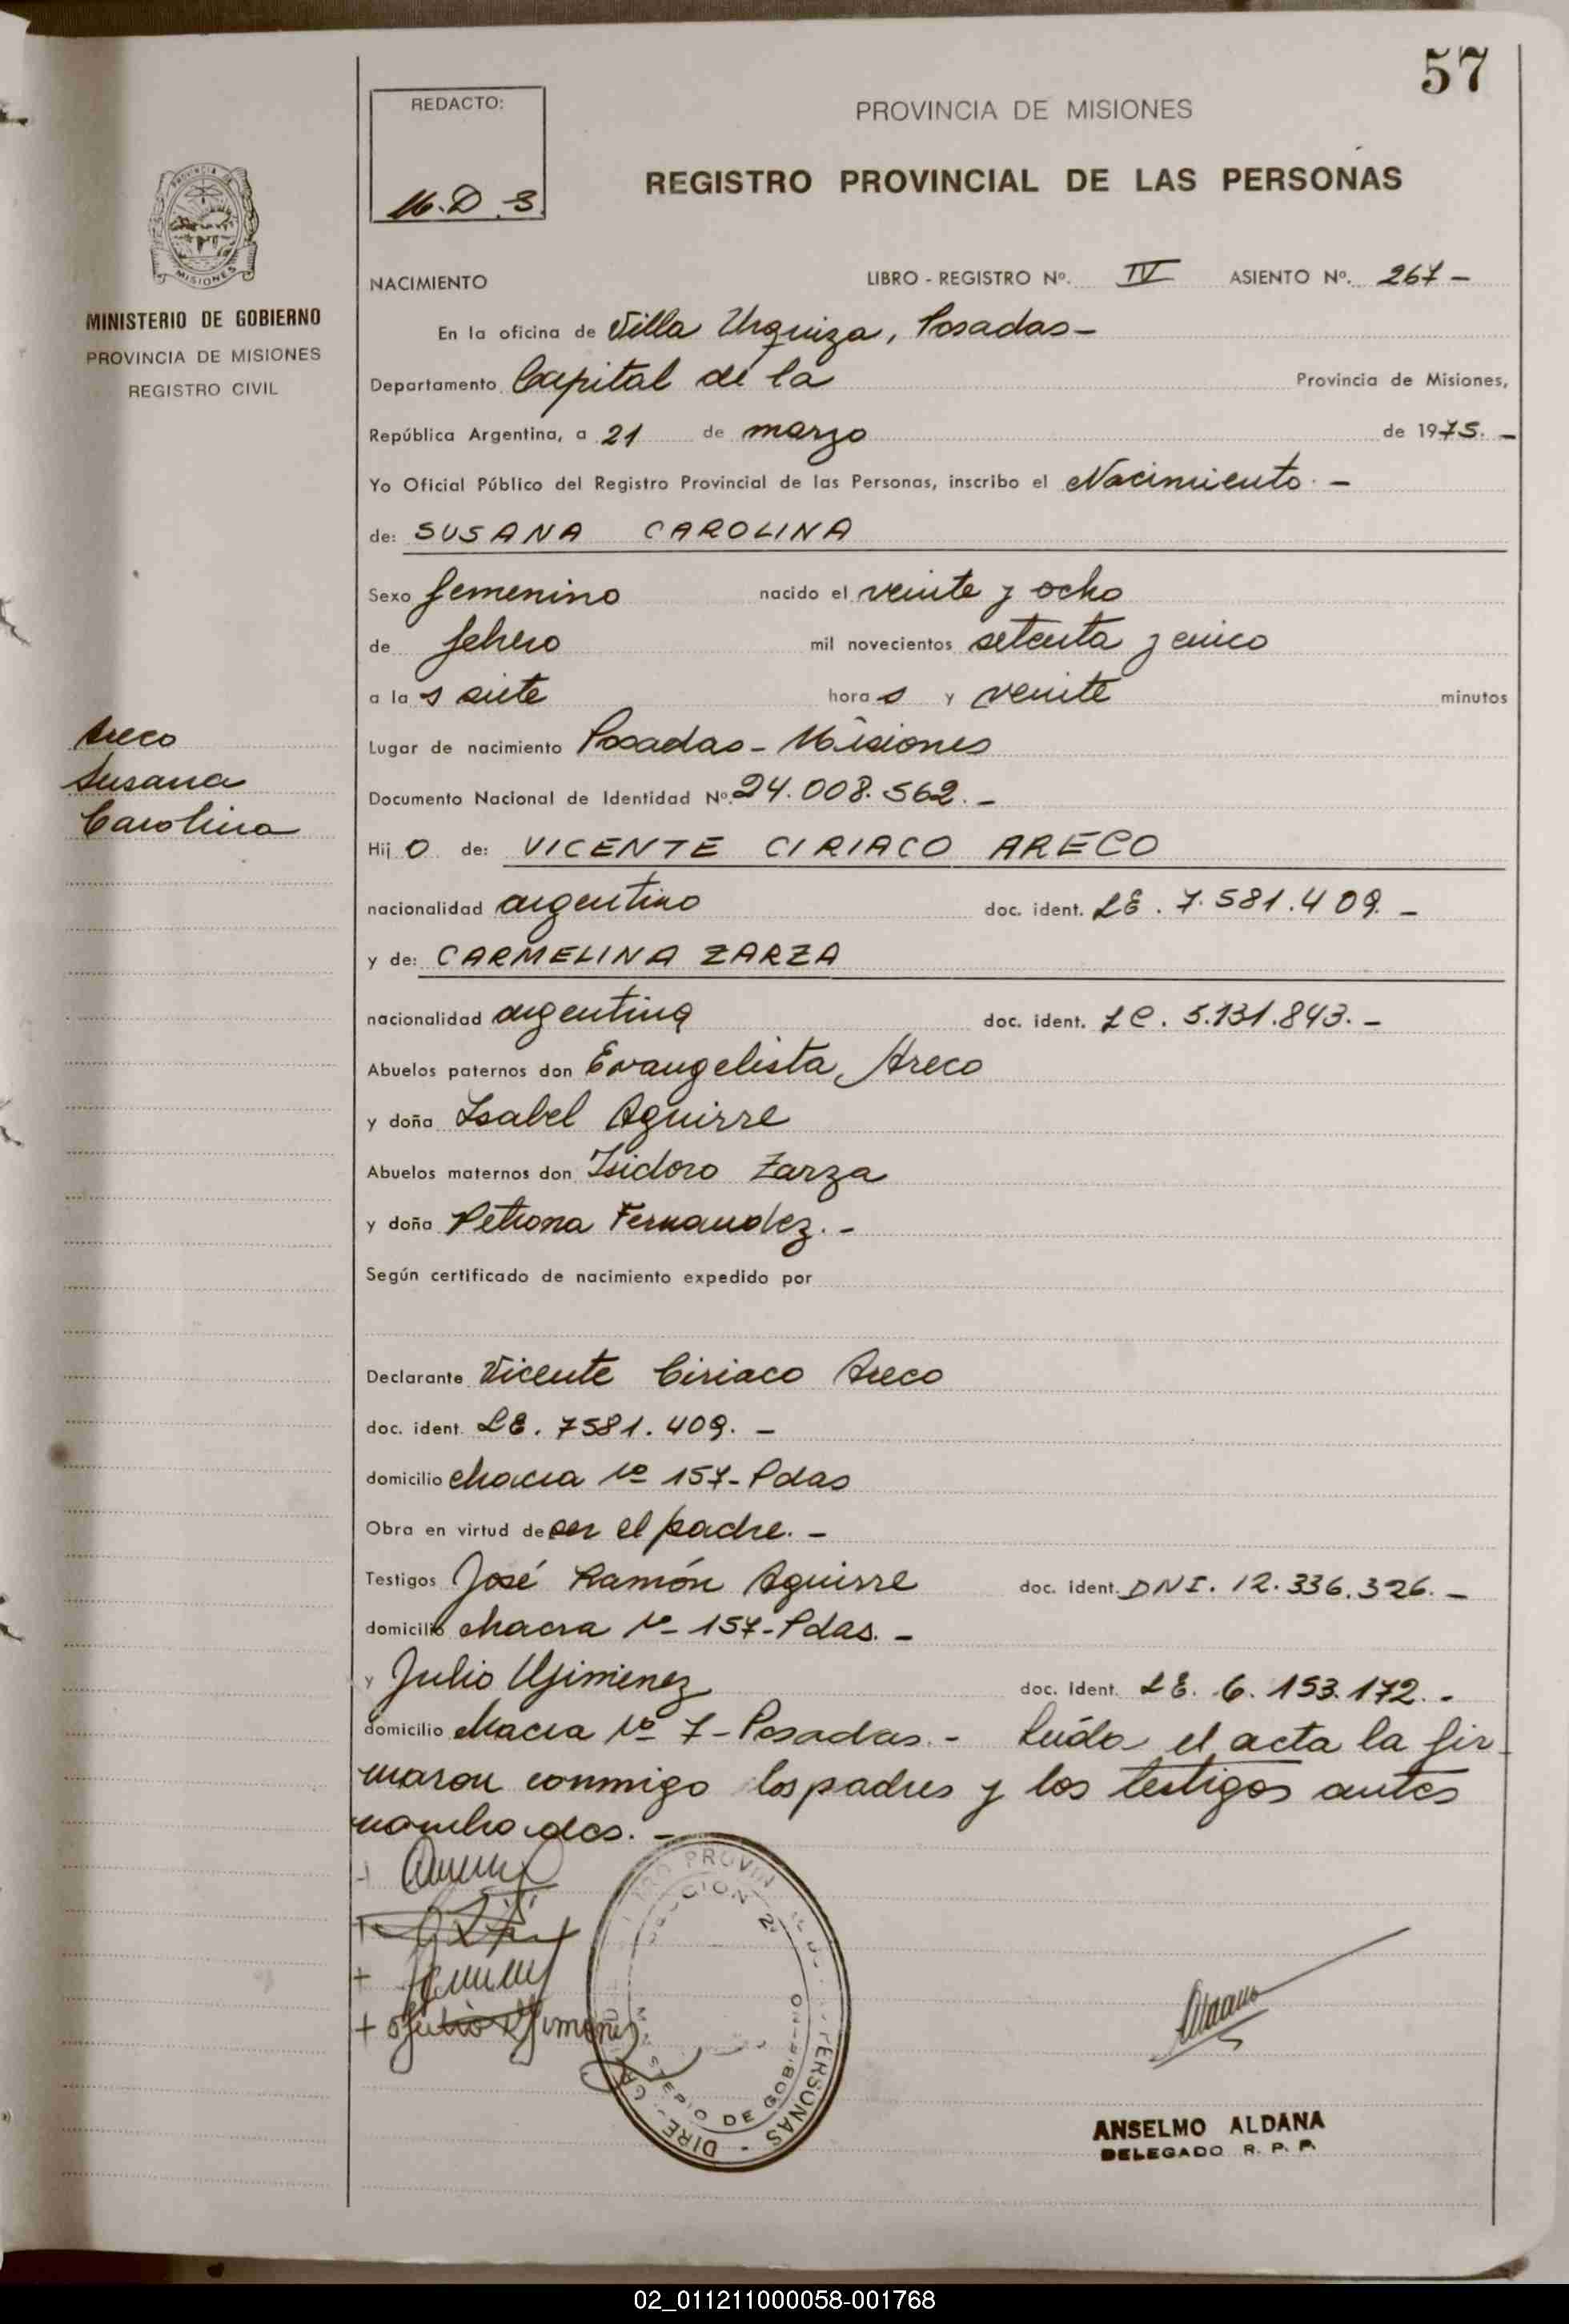 57
REDACTO:
M.D.B.
PROVINCIA DE MISIONES
REGISTRO PROVINCIAL DE LAS PERSONAS
PROVINCIA DE
MISIONES
MINISTERIO DE GOBIERNO
PROVINCIA DE MISIONES
REGISTRO CIVIL
NACIMIENTO LIBRO - REGISTRO Nº. IV ASIENTO Nº. 267 -
En la oficina de Villa Urquiza, Posadas -
Departamento Capital de la Provincia de Misiones,
República Argentina, a 21 de marzo de 1975. -
Yo Oficial Público del Registro Provincial de las Personas, inscribo el Nacimiento. -
de: SUSANA CAROLINA
Sexo femenino nacido el veinte y ocho
de febrero mil novecientos setenta y cinco
a las siete horas y veinte minutos
Areco
Susana
Carolina
Lugar de nacimiento Posadas - Misiones
Documento Nacional de Identidad Nº. 24.008.562. -
Hijo de: VICENTE CIRIACO ARECO
nacionalidad argentino doc. ident. LE. 7.581.409. -
y de: CARMELINA ZARZA
nacionalidad argentina doc. ident. LC. 5.131.843. -
Abuelos paternos don Evangelista Areco
y doña Isabel Aguirre
Abuelos maternos don Isidoro Zarza
y doña Petrona Fernandez. -
Según certificado de nacimiento expedido por
Declarante Vicente Ciriaco Areco
doc. ident. LE. 7581.409. -
domicilio Chacra Nº 157 - Pdas
Obra en virtud de ser el padre. -
Testigos José Ramón Aguirre doc. ident. DNI. 12.336.326. -
domicilio Chacra Nº 157 - Pdas. -
y Julio Gimenez doc. ident. LE. 6.153.172. -
domicilio Chacra Nº 7 - Posadas. - Leída el acta la fir-
maron conmigo los padres y los testigos antes
nombrados. -
+ Julio Gimenez
PROVIN PERSONAS - DIRE
MINISTERIO DE GOBIERNO
ANSELMO ALDANA
DELEGADO R. P. P.
02_011211000058-001768